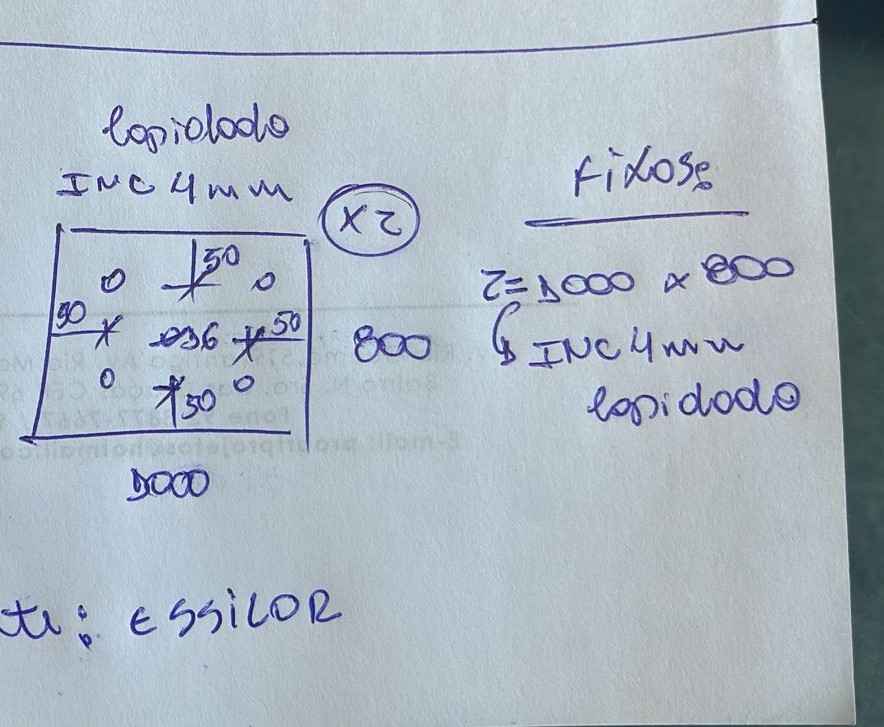 lapidado
INC 4mm
x2
50
50
ø36
50
50
800
1000
Fixos:
2= 1000 x 800
INC 4mm
lapidado
: ESSILOR